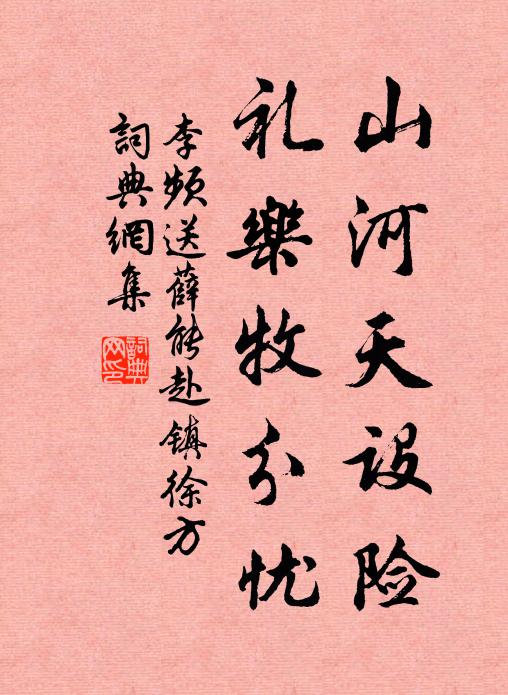 山河天设险
礼樂牧分忧
李频送薛能赴镇徐方
詞典網集
詞典網印